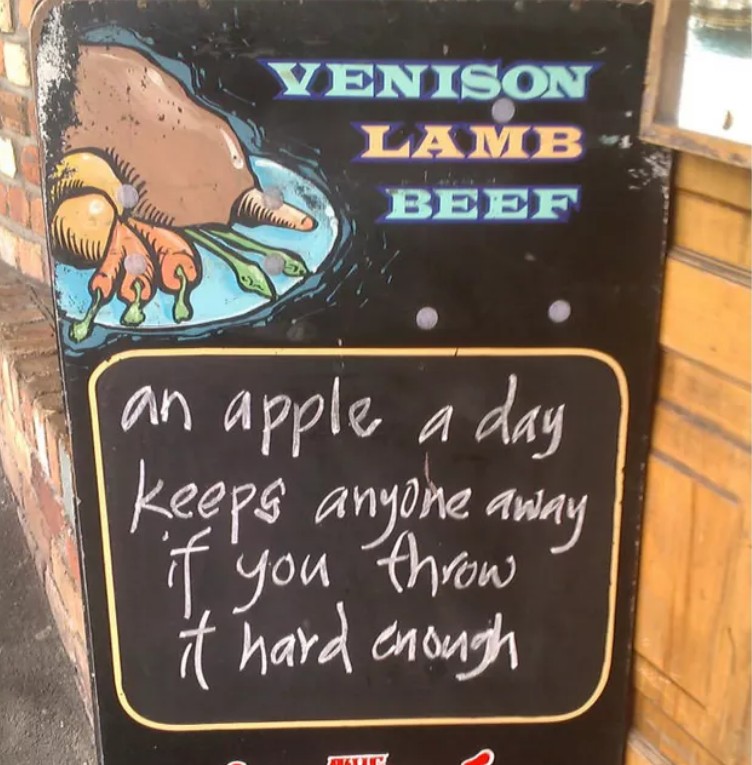 VENISON
LAMB
BEEF
an apple a day
keeps anyone away
if you throw
it hard enough